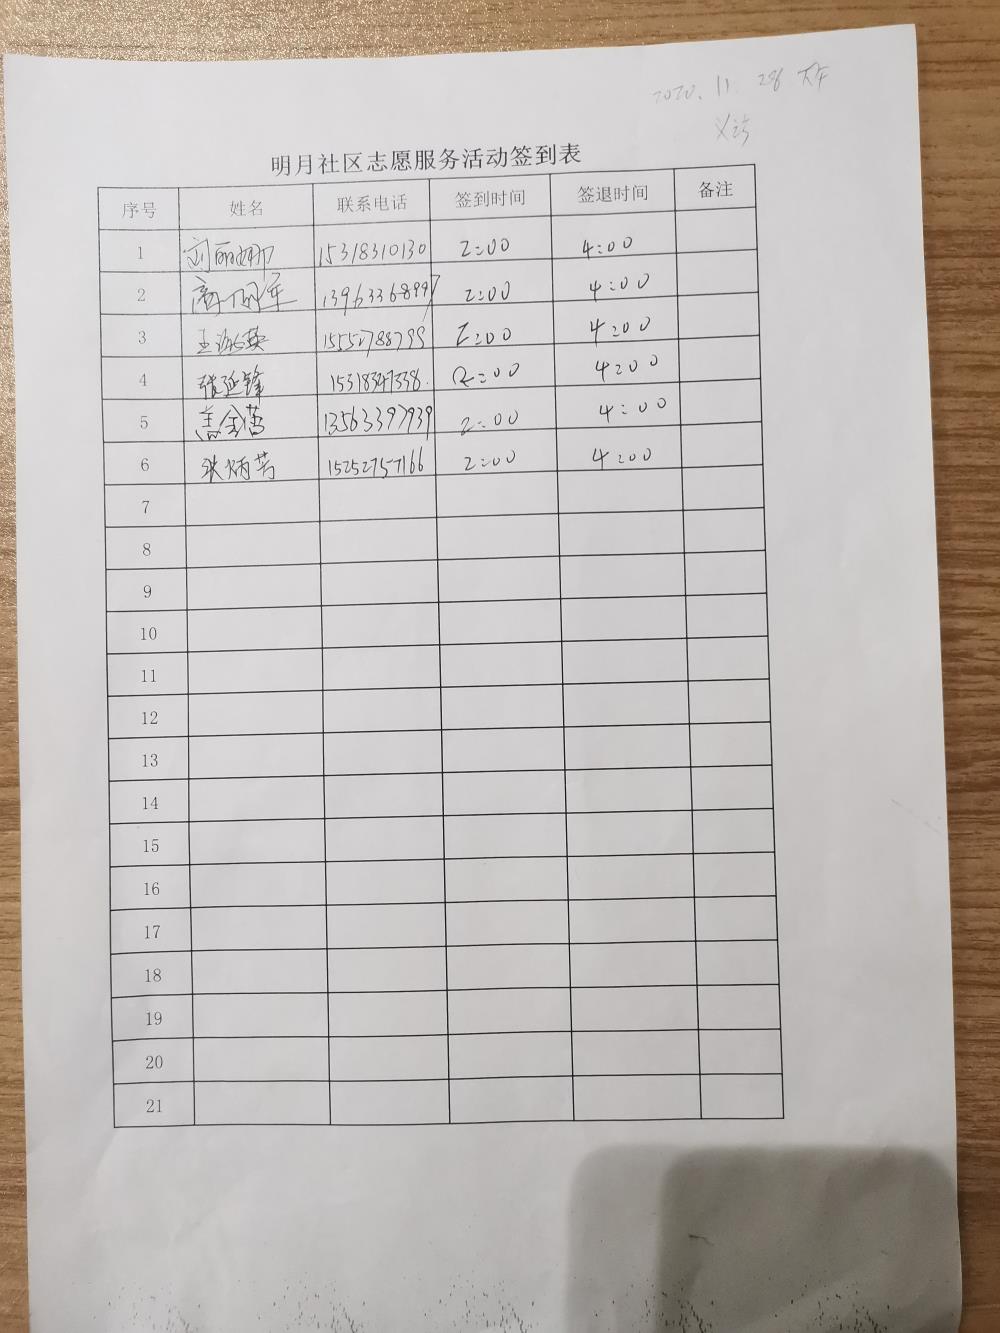 2020.11.28
义诊
明月社区志愿服务活动签到表
序号 姓名 联系电话 签到时间 签退时间 备注
1 刘丽娜 15318310130 2:00 4:00
2 2:00 4:00
3 王淑英 15552788799 2:00 4:00
4 张延锋 15318347338 2:00 4:00
5 13563397939 2:00 4:00
6 张炳芳 15252757166 2:00 4:00
7
8
9
10
11
12
13
14
15
16
17
18
19
20
21